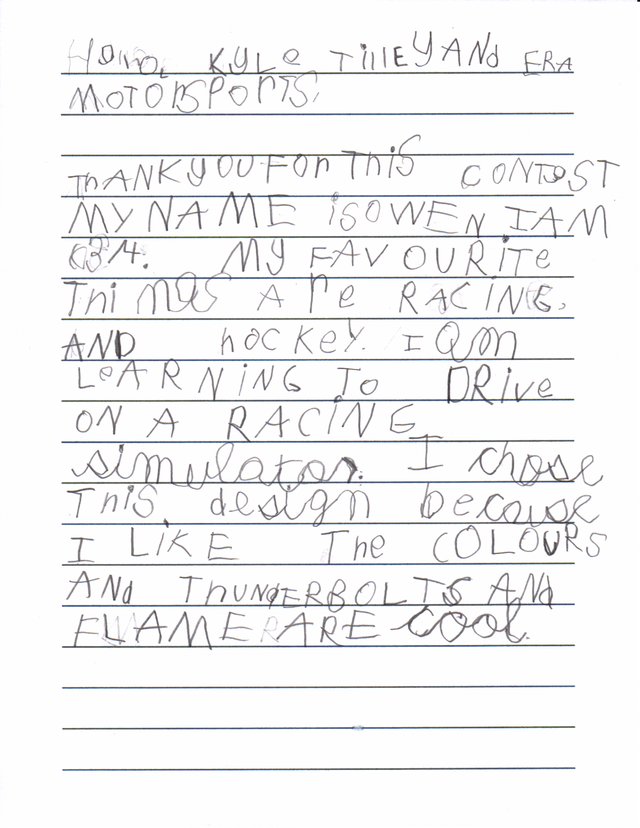 KYLe TillEY ANd ERA
MOTORSPORTS,
THANK YOU FOR THiS CONTEST
MY NAME iS OWEN I AM
MY FAVOURiTe
ThiNGS ARe RACiNG,
AND hocKeY. I Am
LeARNiNG To DRive
ON A RACiNG
simulator. I chose
This design because
I LiKE The COLOURS
ANd ThUNdERBOLTS ANd
FLAME ARE cool.